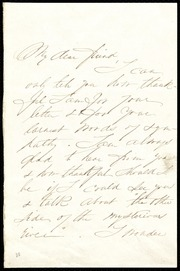 My dear friend,
I can
only tell you how thank-
ful I am for your
letter & for your
sweet words of sym-
pathy. I am always
glad to hear from you
& how thankful I should
be if I could see you
& talk about the other
side of the "mysterious
river". I wonder